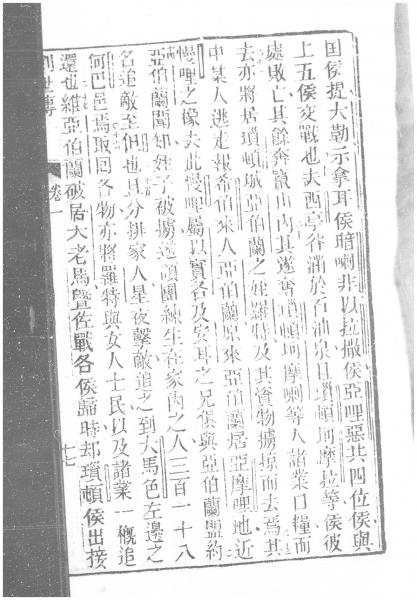 国侯提大勒示拿耳侯暗喇非以拉撒侯亞哩惡共四位侯與
上五侯交戰也夫西亭谷滿於石油泉且瑣頓坷摩拉等侯彼
處敗亡其餘奔竄山內其遂奪瑣頓坷摩喇等人諸業口糧而
去亦將居瑣頓城亞伯蘭之姪羅特及其資物擄掠而去焉其
中某人逃走報希伯來人亞伯蘭原來亞伯蘭居亞摩哩地近
慢哩之橡夫此慢哩屬以實各及安耳之兄俱與亞伯蘭盟約
亞伯蘭聞知姪子被擄遂領團練生在家內之人三百一十八
名追敵至但也且分排家人星夜擊敵追之到大馬色左邊之
何巴邑焉取回各物亦將羅特與女人士民以及諸業一概追
還也維亞伯蘭破居大老馬暨佐戰各侯歸時却瑣頓侯出接
創世傳 卷一 十七